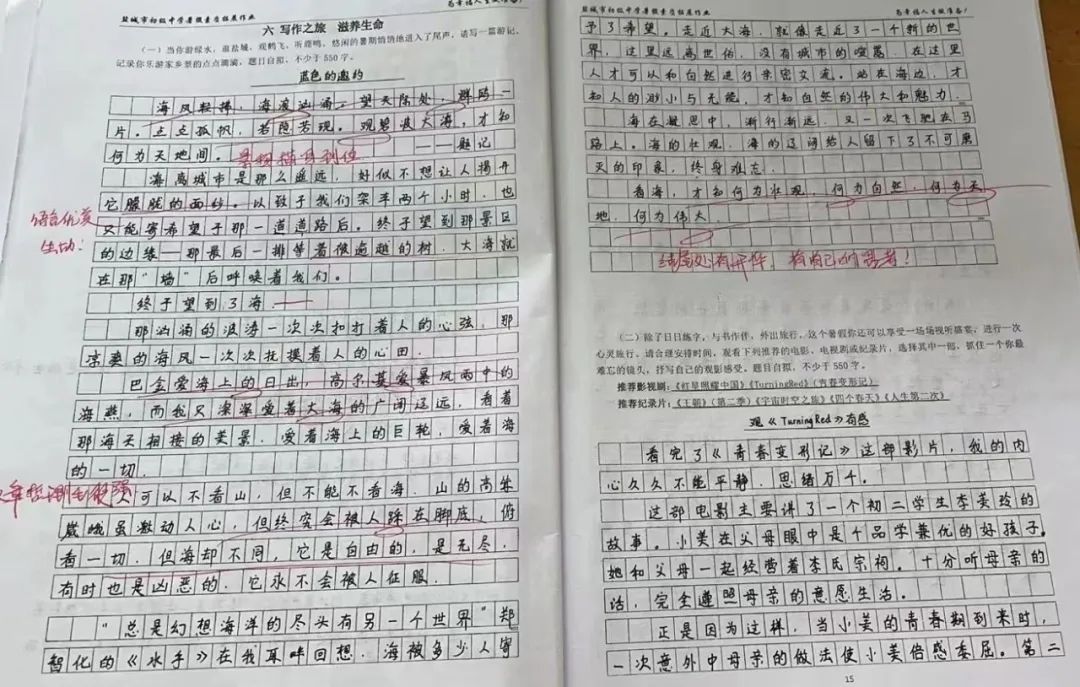 盐城市初级中学暑假素质拓展作业
为幸福人生做准备!
六 写作之旅 滋养生命
(一)当你游绿水,逛盐城,观鹤飞,听鹿鸣,悠闲的暑期悄悄地进入了尾声,请写一篇游记,
记录你乐游家乡景的点点滴滴,题目自拟,不少于550字。
蓝色的邀约
海风轻拂,海浪汹涌。望天际处,群鸥一
片。点点孤帆,若隐若现。观碧波大海,才知
何为天地间。 ——题记
景物描写到位
海离城市是那么遥远,好似不想让人揭开
它朦胧的面纱。以致于我们架车两个小时,也
只能寄希望于那一道道路后。终于望到那景区
语言优美
生动!
的边缘——那最后一排等着很逾越的树,大海就
在那“墙”后呼唤着我们。
终于望到了海——
那汹涌的波涛一次次扣打着人的心弦,那
凉爽的海风一次次抚摸着人的心田。
巴金爱海上的日出,高尔基爱暴风雨中的
海燕,而我只深深爱着大海的广阔辽远,看着
那海天相接的美景,爱着海上的巨轮,爱着海
的一切。
人可以不看山,但不能不看海。山的高耸
巍峨虽激动人心,但终究会被人踩在脚底,俯
看一切。但海却不同,它是自由的,是无尽,
有时也是凶恶的,它永不会被人征服。
“总是幻想海洋的尽头有另一个世界”郑
智化的《水手》在我耳畔回想。海被多少人寄
盐城市初级中学暑假素质拓展作业
为幸福人生做准备!
予了希望。走近大海,就像走近了一个新的世
界,这里远离世俗,没有城市的喧嚣,在这里
人才可以和自然进行亲密交流。站在海边,才
知人的渺小与无能,才知自然的伟大和魅力。
海在凝思中,渐行渐远,又一次飞驰在马
路上。海的壮观,海的辽阔给人留下了不可磨
灭的印象,终身难忘。
看海,才知何为壮观,何为自然,何为天
地,何为伟大。
结尾处有升华,有自己的思考!
(二)除了日日练字,与书作伴,外出旅行,这个暑假你还可以享受一场场视听盛宴,进行一次
心灵旅行。请合理安排时间,观看下列推荐的电影、电视剧或纪录片,选择其中一部,抓住一个你最
难忘的镜头,抒写自己的观影感受。题目自拟,不少于550字。
推荐影视剧:《红星照耀中国》《TurningRed》(青春变形记)
推荐纪录片:《王朝》(第二季)《宇宙时空之旅》《四个春天》《人生第二次》
观《Turning Red》有感
看完了《青春变形记》这部影片,我的内
心久久不能平静,思绪万千。
这部电影主要讲了一个初二学生李美玲的
故事。小美在父母眼中是个品学兼优的好孩子。
她和父母一起经营着李氏宗祠。十分听母亲的
话,完全遵照母亲的意愿生活。
正是因为这样,当小美的青春期到来时,
一次意外中母亲的做法使小美倍感委屈。第二
15